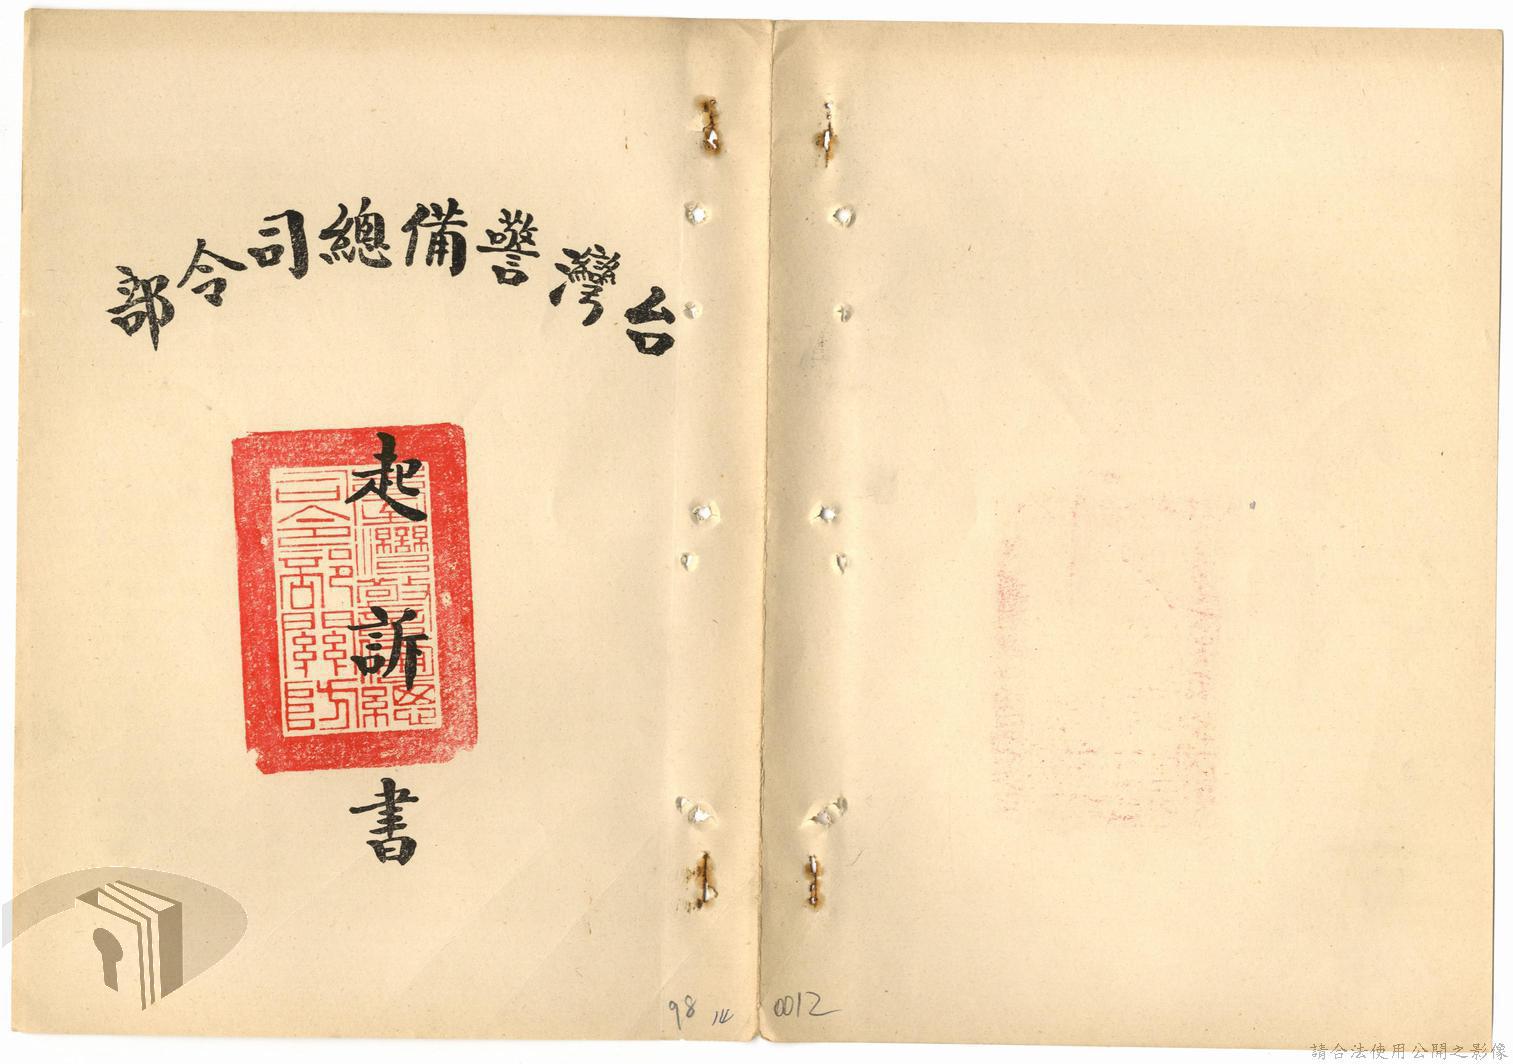 台灣警備總司令部
起訴書
臺灣警備總
司令部關防
98
0012
請合法使用公開之影像